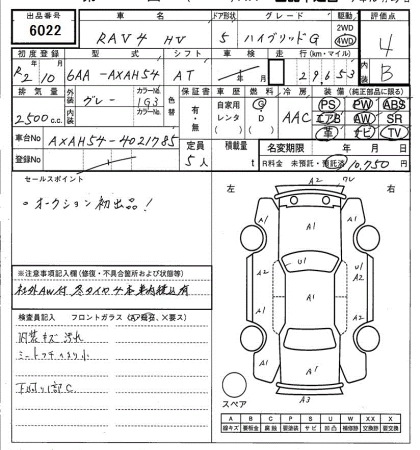 出品番号 車名 ドア形状 グレード 駆動 評価点
6022 RAV4 HV 5 ハイブリッドG 2WD 4WD 4
初度登録 型式 シフト 車検 走行(km・マイル) 内装
R2/10 6AA-AXAH54 AT 年 月 29,653 B
排気量 外装 カラーNo. 色替 保証書 車歴 燃料 冷房 装備(純正部品に限る)
2500c.c. グレー 1G3 有・無 自家用 レンタ G D AAC PS PW ABS
エアB AW SR
革 ナビ TV
車台No AXAH54-4021785 定員 積載量 名変期限 年 月 日
登録No 5人 t R料金 未預託・預託済 10,750 円
セールスポイント
。オークション初出品!
※注意事項記入欄(修復・不具合箇所および状態等)
社外AW付 冬タイヤ4本車内積込有
検査員記入 フロントガラス(A飛石、×要ス)
内装キズ汚れ
下廻り1部C
左 右
A2 ワレ
A1
A1 A1
U1 A1
A2 A2
A1
A1 A1
A3
スペア
A B C P S U W X XX
線キズ 要板金 腐蝕 要塗装 サビ 凹凸 補修跡 要交換